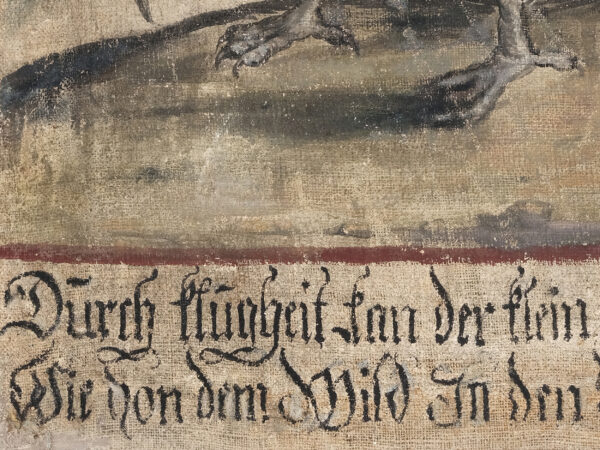 Dūrch klūgheit kan der klein
Wie von dem Wild In den